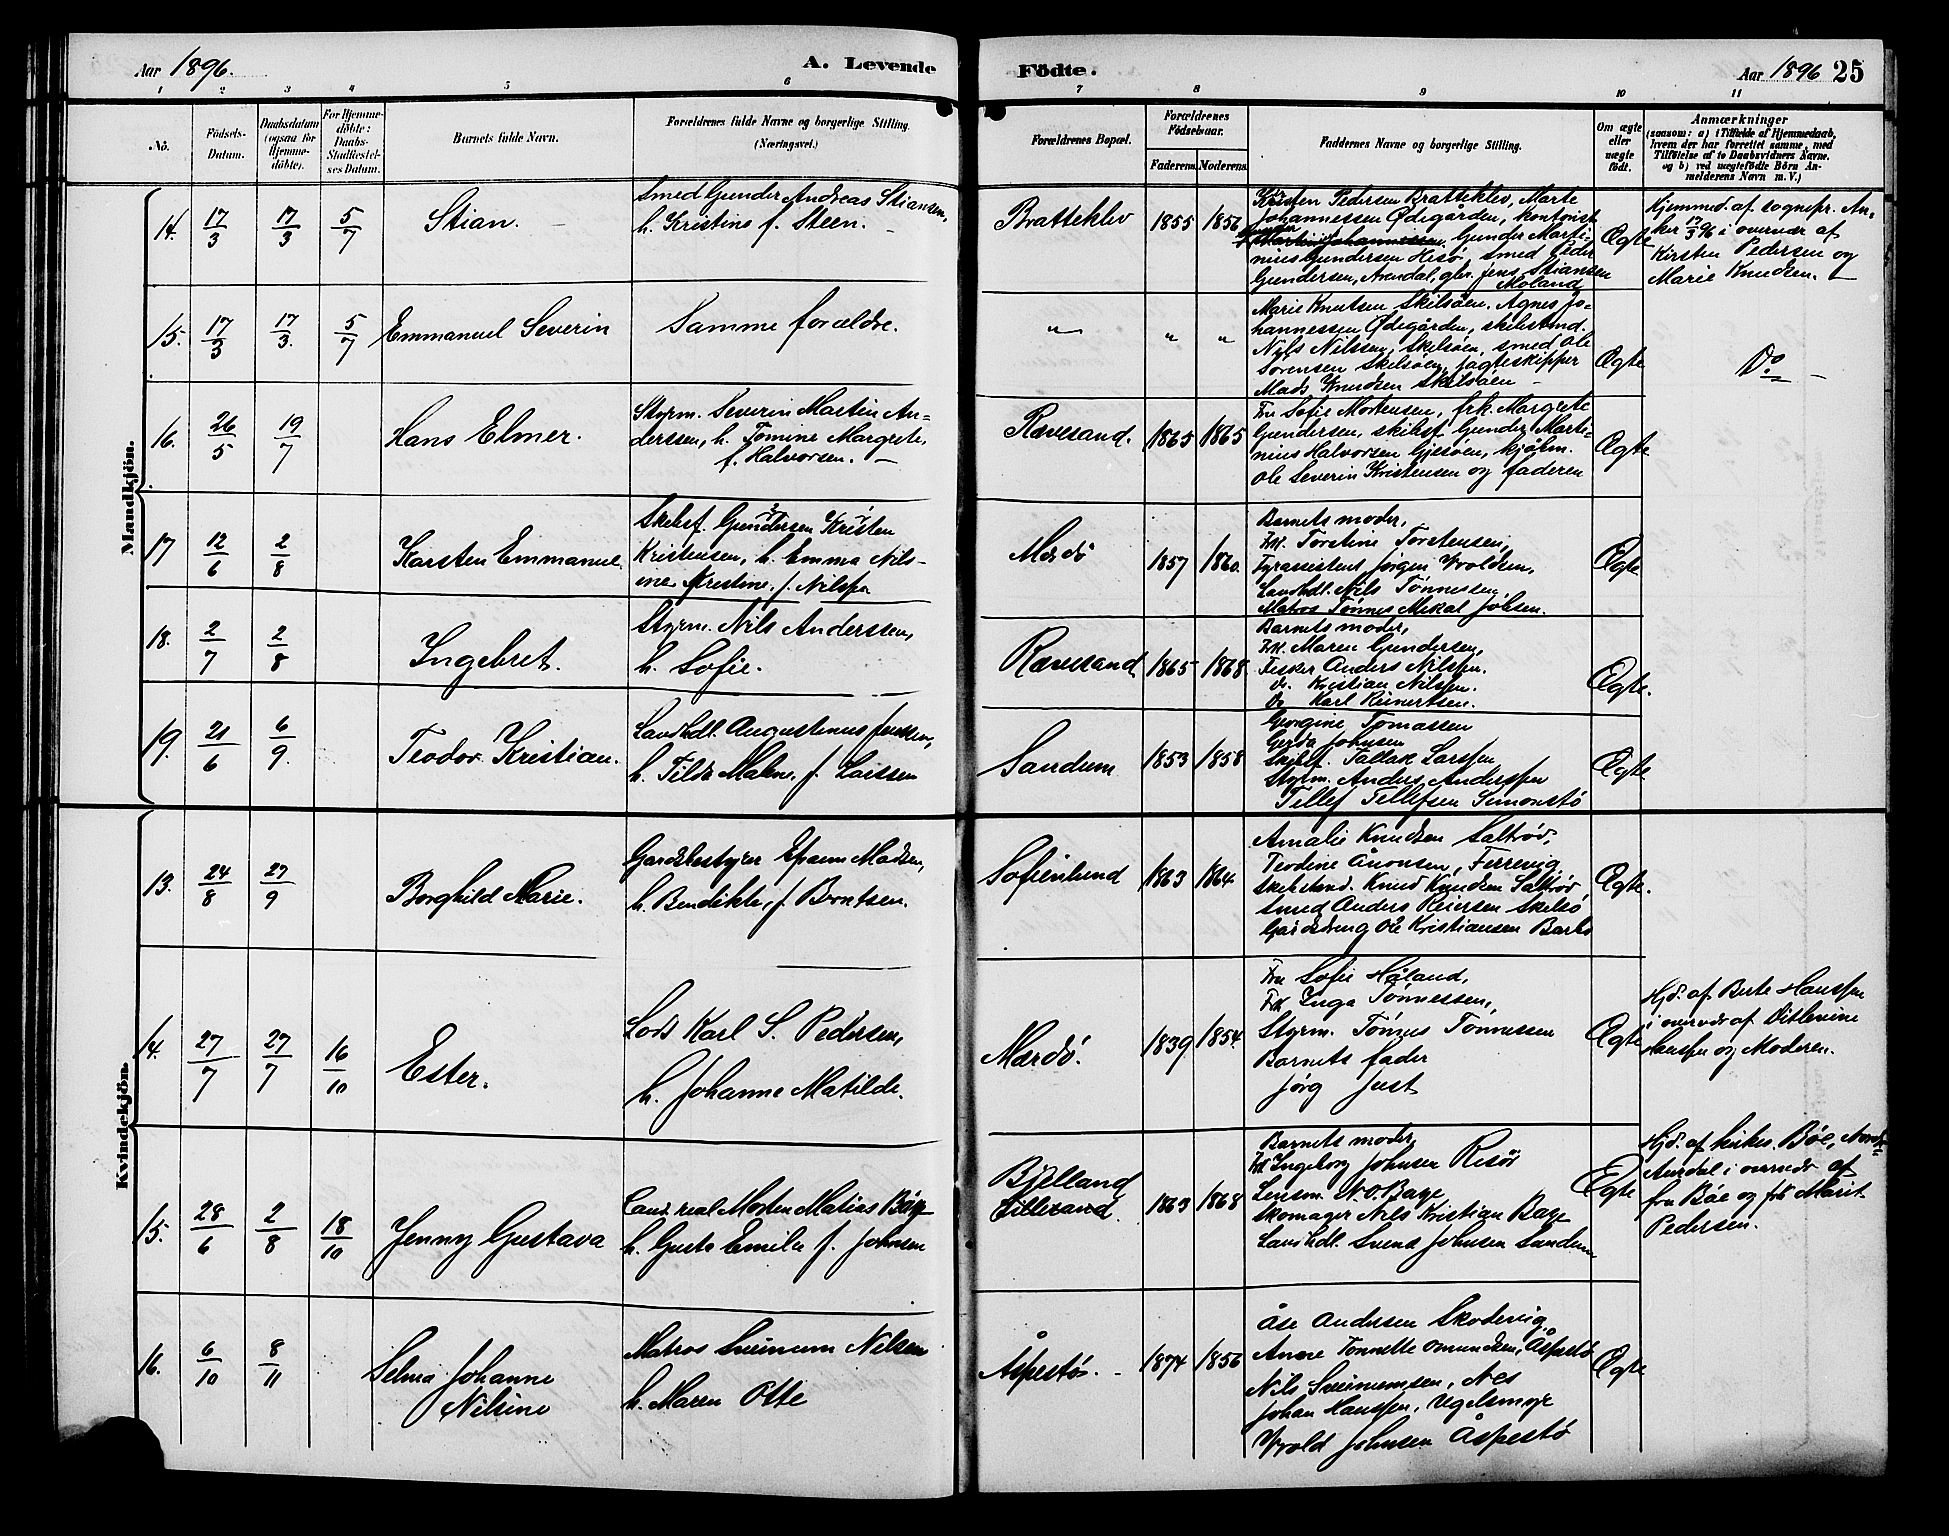 Aar 1896.
A. Levende
Födte.
Aar 1896
25
1 2 3 4 5 6 7 8 9 10 11
No.
Födsels-
Datum.
Daabsdatum
(ogsaa for
Hjemme-
döbte).
For Hjemme-
döbte:
Daabs-
Stadfæstel-
ses Datum.
Barnets fulde Navn.
Forældrenes fulde Navne og borgerlige Stilling.
(Næringsvei.)
Forældrenes Bopæl.
Forældrenes
Födselsaar.
Faderens.
Moderens.
Faddernes Navne og borgerlige Stilling.
Om ægte
eller
uægte
födt.
Anmærkninger
(saasom: a) i Tilfælde af Hjemmedaab,
hvem der har forrettet samme, med
Tilföielse af to Daabsvidners Navne,
og b) ved uægtefödte Börn An-
melderens Navn m. V.)
Mandkjön.
14. 17/3 17/3 5/7
Stian.
Smed Gunder Andreas Stiansen,
h. Kristine f. Steen.
Bratteklev
1855 1856
Kirsten Pedersen Bratteklev, Marte
Johannessen Ødegården, kontorist
Gunder Marti-
nius Gundersen Hisö, smed Peder
Gundersen, Arendal, gbr. Jens Stiansen
Moland
Ægte
Hjemmed. af sognepr. An-
ker 17/3 96 i overvær af
Kirsten Pedersen og
Marie Knudsen.
15. 17/3 17/3. 5/7
Emmanuel Severin
Samme forældre.
" " "
Marie Knutsen Skilsøen. Agnes Jo-
hannessen Ødegården, skibstmd.
Nils Nilssen, Skilsøen, smed Ole
Sørensen Skilsøen, jagtskipper
Mads Knudsen Skilsøen
Ægte
Do
16. 26/5 19/7
Hans Elmer.
Styrm. Severin Martin An-
derssen, h. Tomine Margrete,
f. Halvorsen.
Rævesand.
1865 1865
Fru Sofie Mortensen, frk. Margrete
Gundersen, skibsf. Gunder Marti-
nius Halvorsen Gjesøen, kjøbm.
Ole Severin Kristensen og faderen
Ægte
17 12/6 2/8
Karsten Emmanuel
Skibsf. Gundersen Kristen
Kristensen, h. Emma Nils-
ine Kristine. f. Nilssen
Mærdö
1857 1860.
Barnets moder,
Frk. Torstine Torstensen,
Fyrassistent Jörgen Wroldsen,
Landhdl. Nils Tønnessen,
Matros Tønnes Mikal Johsen.
Ægte
18. 2/7 2/8
Ingebret.
Styrm. Nils Anderssen,
h. Sofie.
Rævesand
1865 1868
Barnets moder,
Frk. Maren Gundersen,
Fisker Anders Nilssen.
Do. Kristian Nilssen.
Do Karl Reinertsen.
Ægte.
19. 21/6 6/9.
Teodor Kristian.
Landhdl. Augustinus Jenssen,
h. Tilda Malene, f. Larssen
Sandum
1853 1858
Georgine Tomassen
Gerda Johnsen
Skibsf. Tallak Larssen
Styrm. Anders Anderssen
Tellef Tellefsen Simonstö
Ægte
Kvindekjön.
13. 24/8 27/9
Borghild Marie.
Gardsbestyrer Efraim Madsen,
h. Bendikte, f. Berntsen.
Sofienlund
1863 1864
Amalie Knudsen Saltröd,
Teodine Aanonsen, Ferrevig
Skibstmd. Knud Knudsen Saltröd
Smed Anders Reiersen Skilsö
Gardsdreng Ole Kristiansen Barbo
Ægte.
14. 27/7 27/7 16/10
Ester.
Lods Karl S. Pedersen,
h. Johanne Matilde.
Mærdö.
1839 1854.
Fru Sofie Håland,
Frk Inga Tønnessen,
Styrm. Tönnes Tönnessen
Barnets fader
Jörg Just
Ægte
Hjd. af Berte Hanssen
i overvær af Ditlevine
Hanssen og Moderen.
15. 28/6 2/8 18/10
Jenny Gustava
Cand. real Morten Matias Böye
h. Gusta Emilie f. Johnsen
Bjelland
Lillesand.
1863 1868
Barnets moder,
Frk Ingeborg Johnsen Risör
Lensm. N. O. Baye
Skomager Nils Kristian Baye
Landhdl. Svend Johnsen Sandum
Ægte
Hjd. af kirkes. Böe, Nordre
Aurdal i overvær af
fru Böe og frk Marit
Pedersen.
16. 6/10 8/11
Selma Johanne
Nilsine
Matros Sveinum Nilsen
h. Maren Otte
Åspestö.
1874 1856
Åse Andersen Skodevig,
Anne Tonnette Omundsen, Åspestö
Nils Sveinumsen, Nes
Johan Hanssen, Vegelsmyr
Wrold Johnsen Åspestö
Ægte